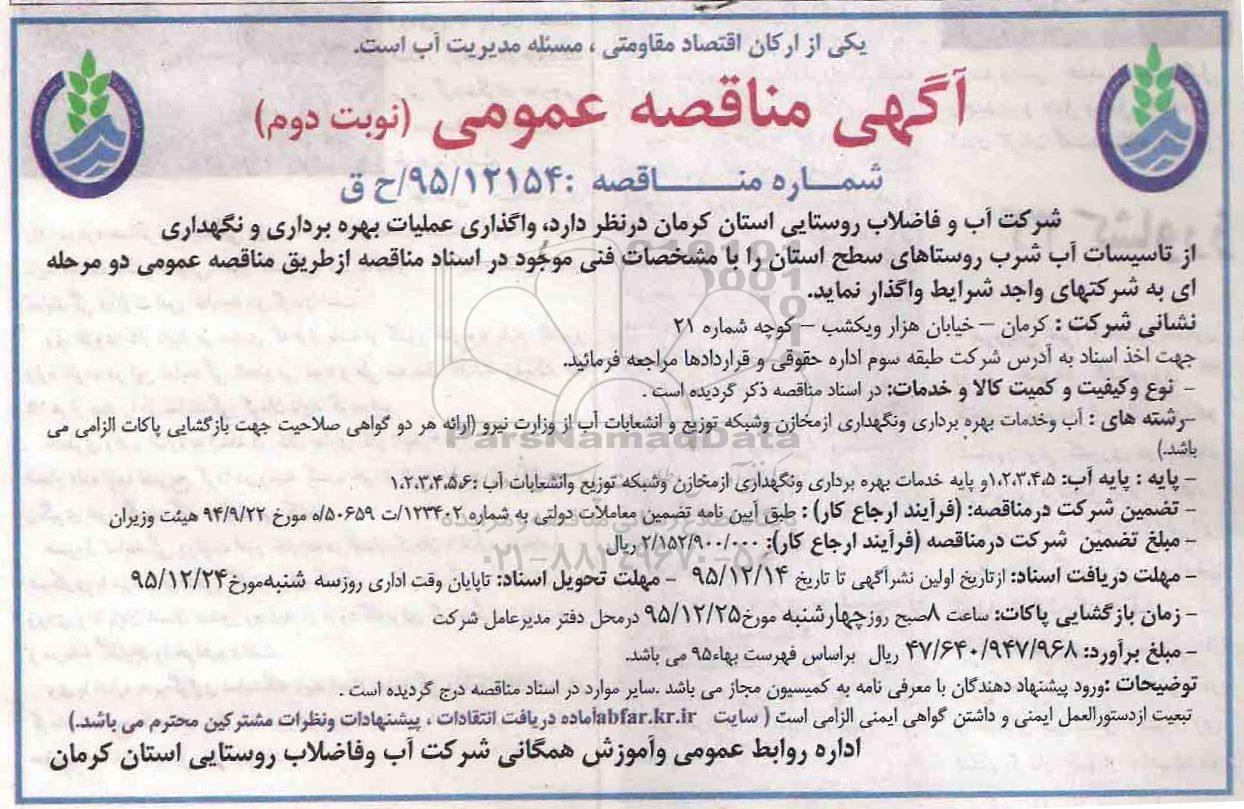 یکی از ارکان اقتصاد مقاومتی ، مسئله مدیریت آب است.
آگهی مناقصه عمومی (نوبت دوم)
شماره مناقصه :۹۵/۱۲۱۵۴/ح ق
شرکت آب و فاضلاب روستایی استان کرمان درنظر دارد، واگذاری عملیات بهره برداری و نگهداری
از تاسیسات آب شرب روستاهای سطح استان را با مشخصات فنی موجود در اسناد مناقصه ازطریق مناقصه عمومی دو مرحله
ای به شرکتهای واجد شرایط واگذار نماید.
نشانی شرکت : کرمان – خیابان هزار ویکشب – کوچه شماره ۲۱
جهت اخذ اسناد به آدرس شرکت طبقه سوم اداره حقوقی و قراردادها مراجعه فرمائید.
- نوع وکیفیت و کمیت کالا و خدمات: در اسناد مناقصه ذکر گردیده است .
-رشته های : آب وخدمات بهره برداری ونگهداری ازمخازن وشبکه توزیع و انشعابات آب از وزارت نیرو (ارائه هر دو گواهی صلاحیت جهت بازگشایی پاکات الزامی می
باشد.)
- پایه : پایه آب: ۱،۲،۳،۴،۵و پایه خدمات بهره برداری ونگهداری ازمخازن وشبکه توزیع وانشعابات آب :۱،۲،۳،۴،۵،۶
- تضمین شرکت درمناقصه: (فرآیند ارجاع کار) : طبق آیین نامه تضمین معاملات دولتی به شماره ۱۲۳۴۰۲/ت ۵۰۶۵۹/ه مورخ ۹۴/۹/۲۲ هیئت وزیران
- مبلغ تضمین شرکت درمناقصه (فرآیند ارجاع کار): ۲/۱۵۲/۹۰۰/۰۰۰ ریال
- مهلت دریافت اسناد: ازتاریخ اولین نشرآگهی تا تاریخ ۹۵/۱۲/۱۴ - مهلت تحویل اسناد: تاپایان وقت اداری روزسه شنبه‌مورخ۹۵/۱۲/۲۴
- زمان بازگشایی پاکات: ساعت ۸صبح روزچهارشنبه مورخ۹۵/۱۲/۲۵ درمحل دفتر مدیرعامل شرکت
- مبلغ برآورد: ۴۷/۶۴۰/۹۴۷/۹۶۸ ریال براساس فهرست بهاء۹۵ می باشد.
توضیحات :ورود پیشنهاد دهندگان با معرفی نامه به کمیسیون مجاز می باشد .سایر موارد در اسناد مناقصه درج گردیده است .
تبعیت ازدستورالعمل ایمنی و داشتن گواهی ایمنی الزامی است ( سایت abfar.kr.irآماده دریافت انتقادات ، پیشنهادات ونظرات مشترکین محترم می باشد.)
اداره روابط عمومی وآموزش همگانی شرکت آب وفاضلاب روستایی استان کرمان
ParsNamadData